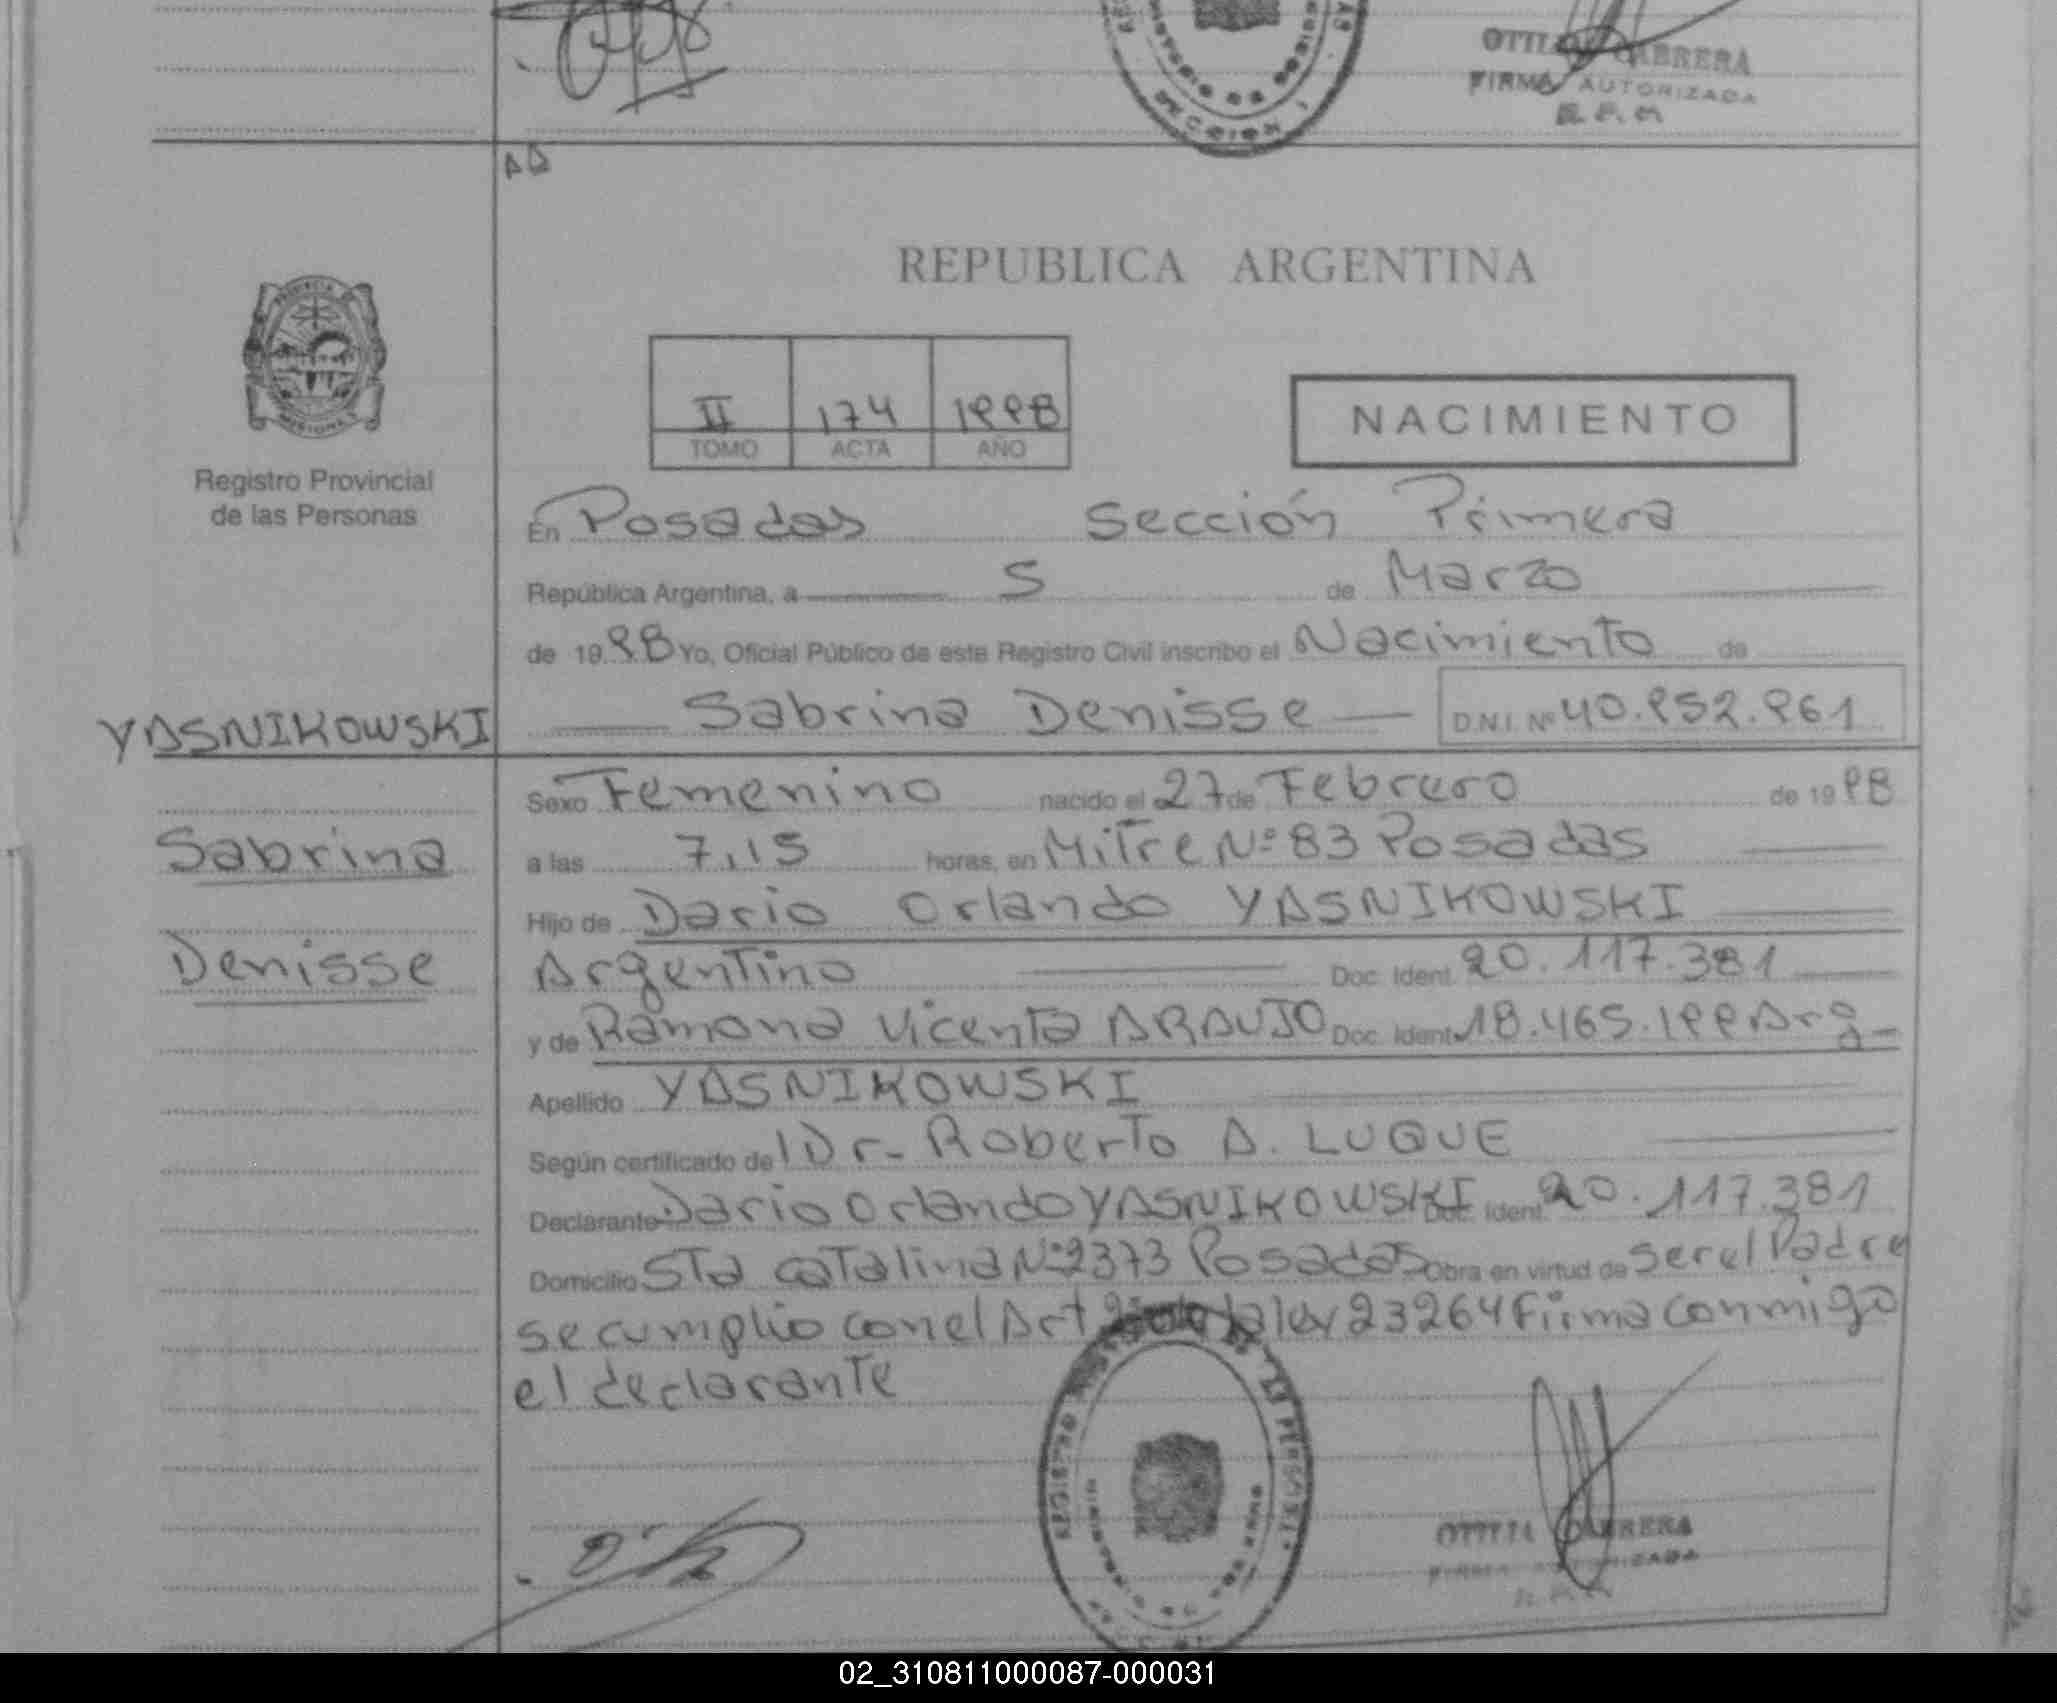 OTILIA CABRERA
FIRMA AUTORIZADA
R.P.M
REPUBLICA ARGENTINA
PROVINCIA
MISIONES
Registro Provincial
de las Personas
II 174 1998
TOMO ACTA AÑO
NACIMIENTO
En Posadas Sección Primera
República Argentina, a 5 de Marzo
de 1998 Yo, Oficial Público de este Registro Civil inscribo el Nacimiento de
Sabrina Denisse D.N.I. Nº 40.952.961
YASNIKOWSKI
Sabrina
Denisse
Sexo Femenino nacido el 27 de Febrero de 1998
a las 7,15 horas, en Mitre Nº 83 Posadas
Hijo de Dario Orlando YASNIKOWSKI
Argentino Doc. Ident. 20.117.381
y de Ramona Vicenta ARAUJO Doc. Ident. 18.465.199 Arg
Apellido YASNIKOWSKI
Según certificado del Dr- Roberto A. LUQUE
Declarante Dario Orlando YASNIKOWSKI Doc. Ident. 20.117.381
Domicilio Sta Catalina Nº 2373 Posadas Obra en virtud de ser el Padre
se cumplio con el Art de la ley 23264 Firma conmigo
el declarante
REGISTRO LAS PERSONAS
OTILIA CABRERA
FIRMA AUTORIZADA
R.P.M
02_310811000087-000031